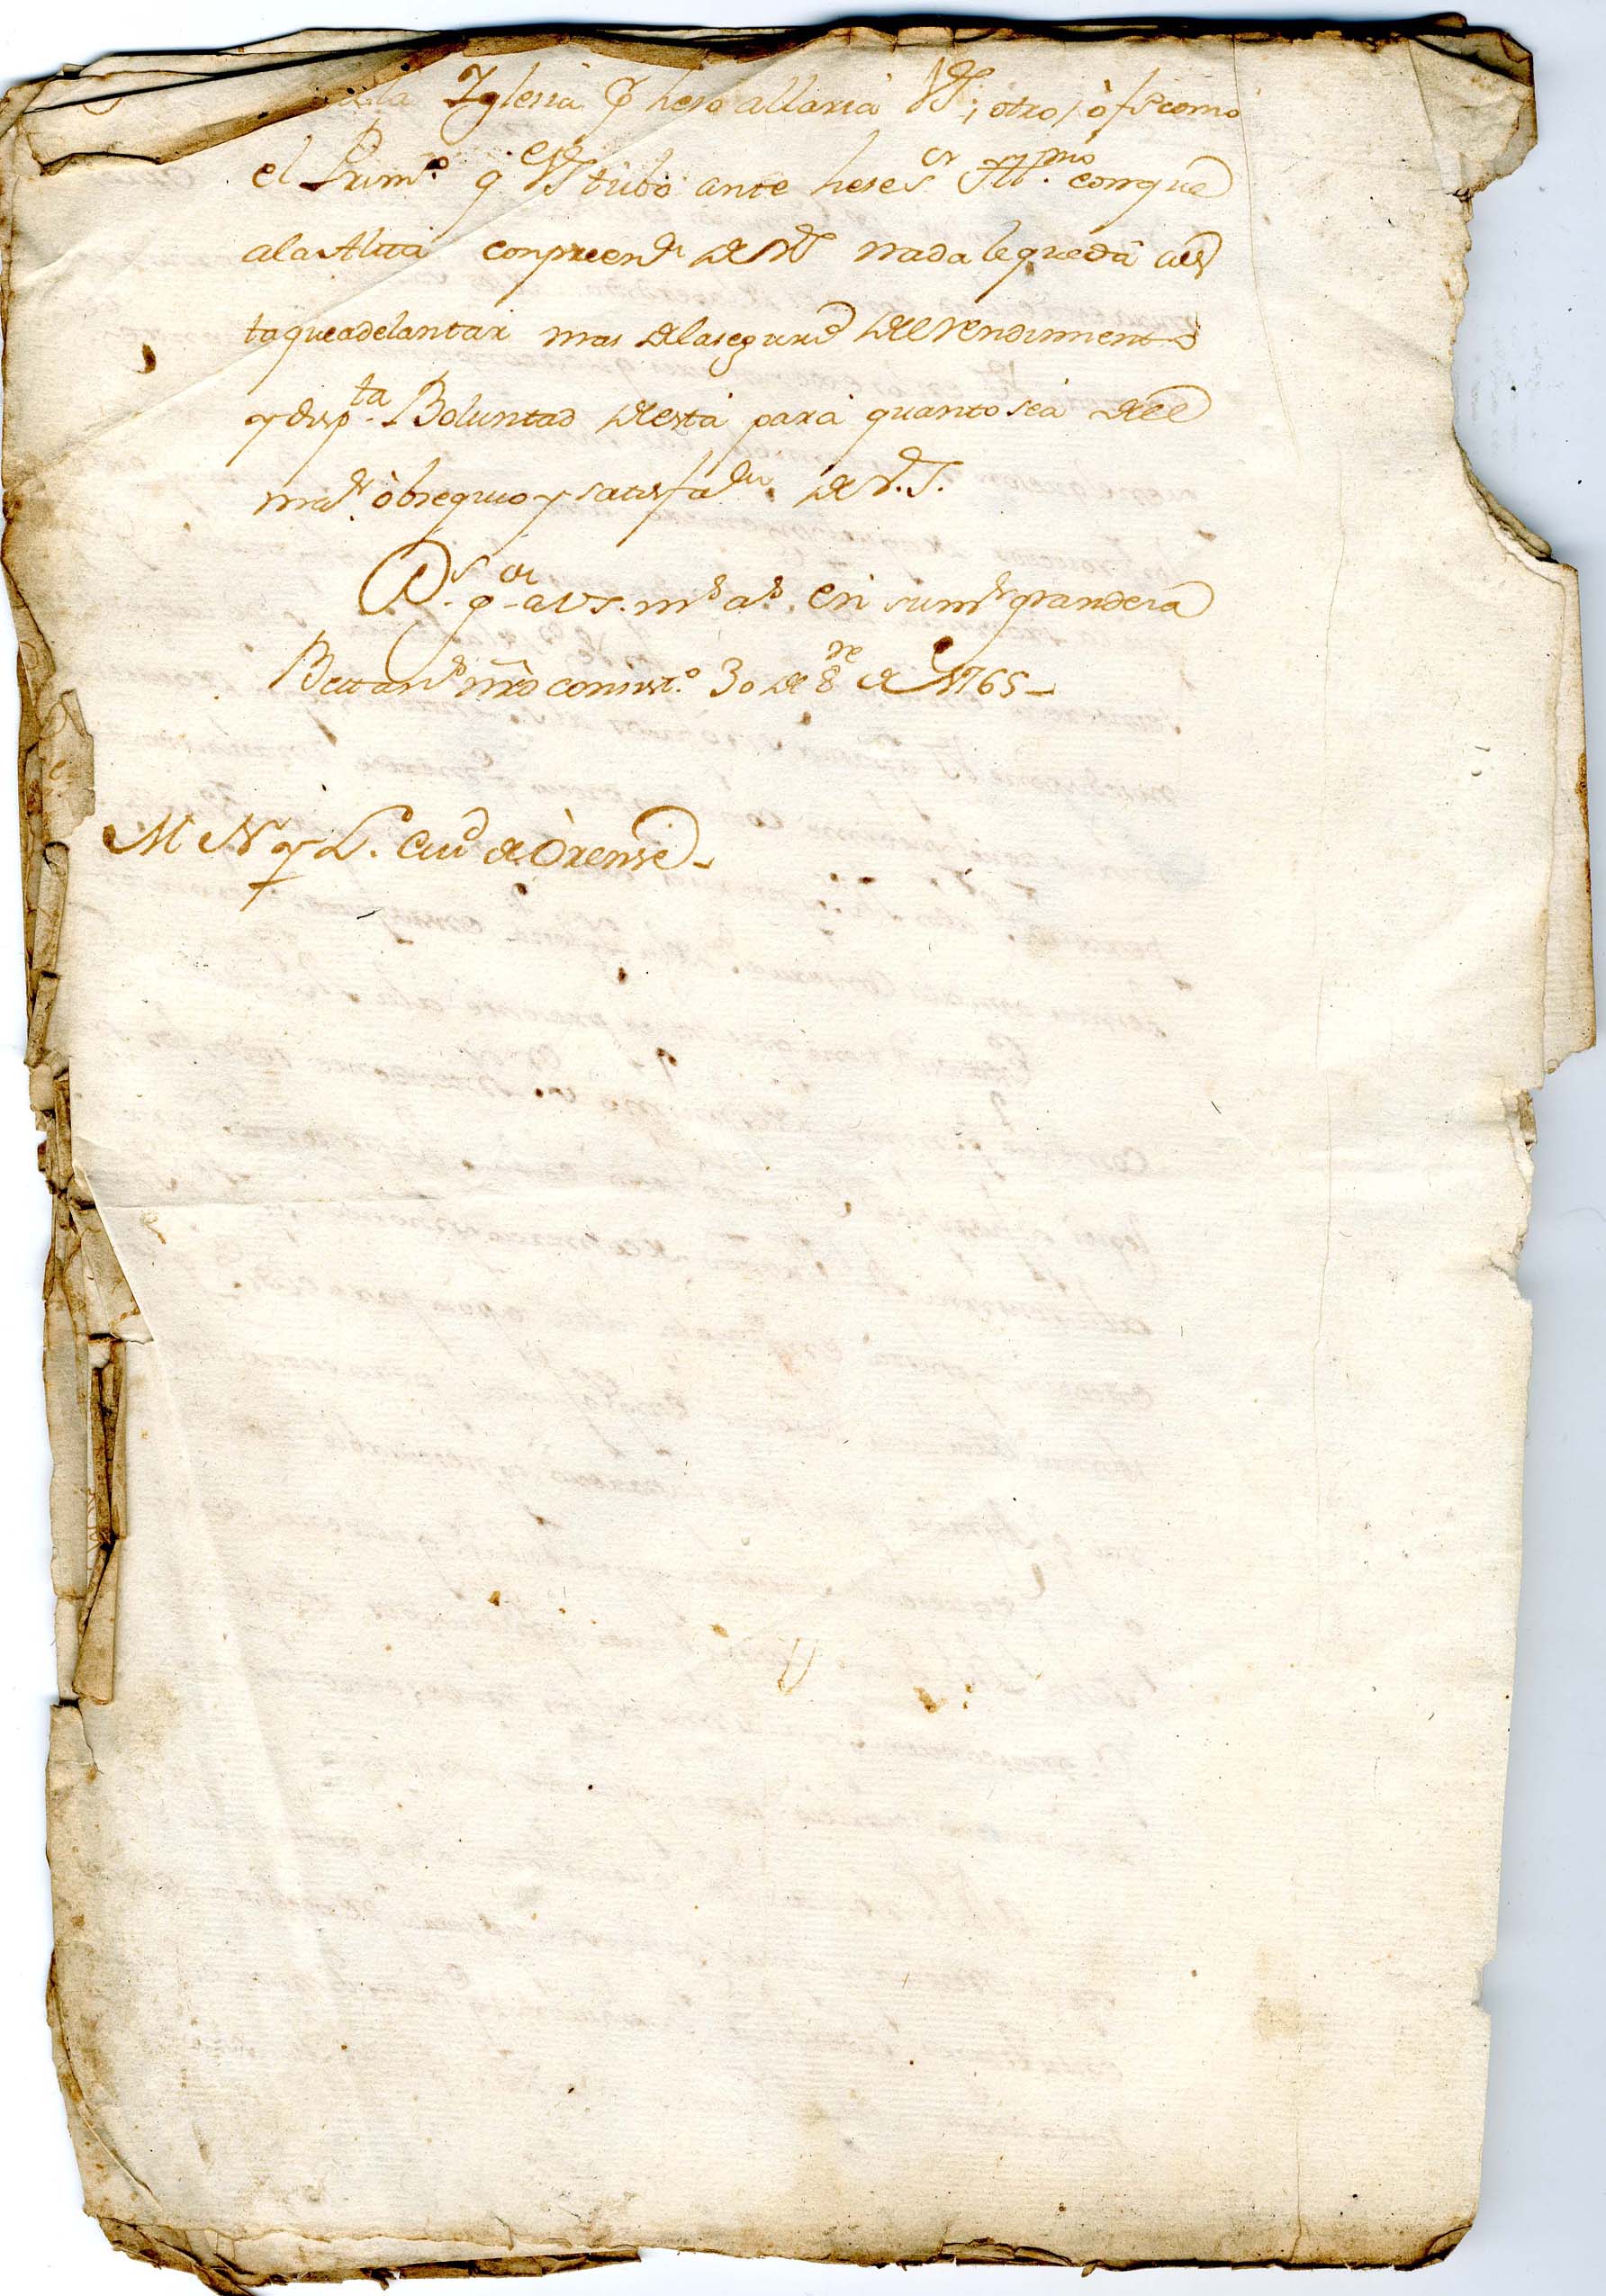 la Iglesia q̃ hera allaria VS; otro; ò fe como
el Prim.º q VS tubo ante hese S.or Ill.mo conque
ala Alta conpreen.n de VS nada le queda a es
ta que adelantar mas de la segurid del rendimento
y disp.ta Boluntad de esta para quanto sea del
ma.r obsequio y satisfa.n de V.S.
D.s g.e a VS. m.s a.s en su m.r grandeza
Bettan.s nr̃o consist.º 30 de 8.re de 1765
M N y L. Ciud de Orense